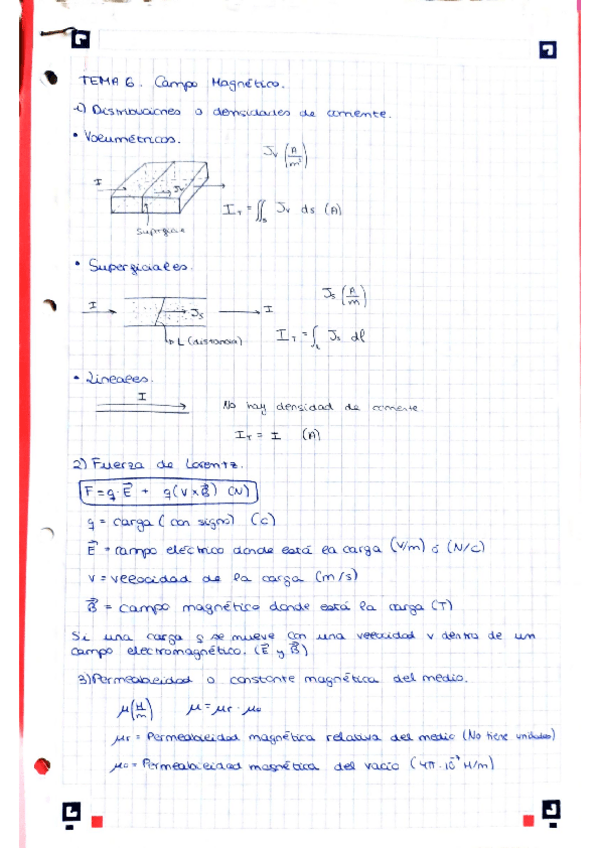 TEMA 6. Campo Magnético.
1) Distribuciones o densidades de corriente.
• Volumétricos.
Jv (A/m²)
I
Jv
I_T = ∬_S Jv ds (A)
Superficie
• Superficiales.
Js (A/m)
I
Js
I
L (distancia)
I_T = ∫_L Js dl
• Lineales.
I
No hay densidad de corriente.
I_T = I (A)
2) Fuerza de Lorentz.
F = q·E⃗ + q(v×B⃗) (N)
q = carga (con signo) (C)
E⃗ = campo eléctrico donde está la carga (V/m) ó (N/C)
v = velocidad de la carga (m/s)
B⃗ = campo magnético donde está la carga (T)
Si una carga q se mueve con una velocidad v dentro de un
campo electromagnético. (E⃗ y B⃗)
3) Permeabilidad o constante magnética del medio.
μ(H/m) μ = μr · μo
μr = Permeabilidad magnética relativa del medio (No tiene unidades)
μo = Permeabilidad magnética del vacío (4π·10⁻⁷ H/m)